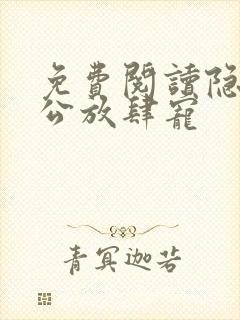 免費閱讀隐
公放肆寵
青冥迦若